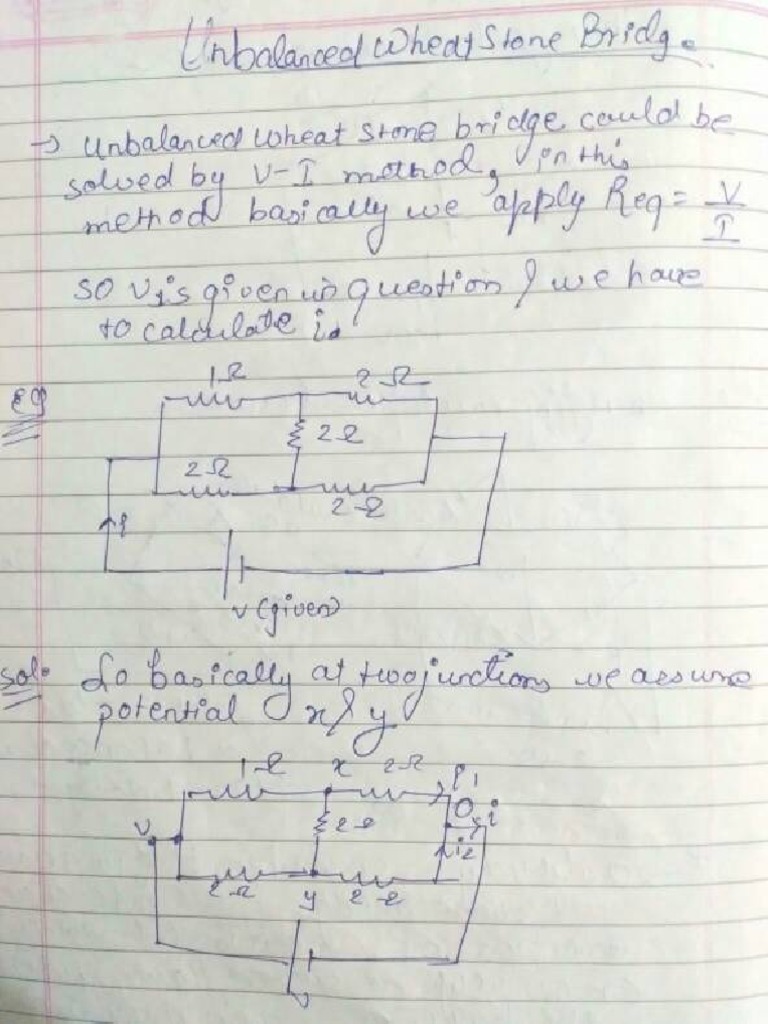 Unbalanced Wheat Stone Bridg.
→ Unbalanced wheat stone bridge could be
solved by V-I method, in this
method basically we apply Req = V/I
so V is given in question & we have
to calculate i.
eg
1Ω 2Ω
2Ω
2Ω
2Ω
i
V (given)
Sol. So basically at two junctions we assume
potential x & y
1Ω x 2Ω i1
0 i
V 2Ω i2
2Ω y 2Ω
V